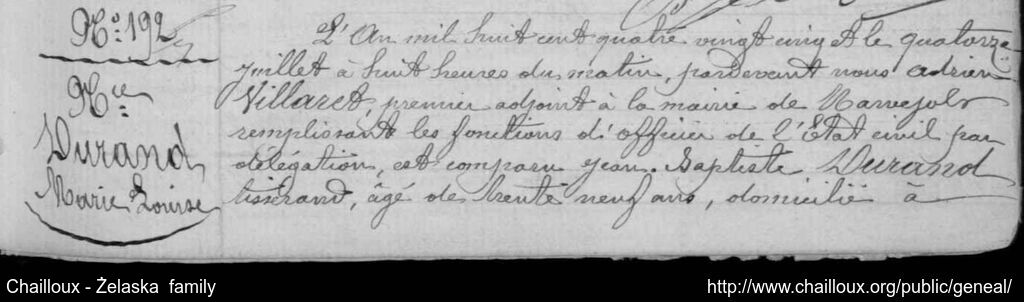 No. 192
Nce
Durand
Marie Louise
L'An mil huit cent quatre vingt cinq et le quatorze
juillet à huit heures du matin, pardevant nous adrien
Villaret, premier adjoint à la mairie de Marvejols
remplissant les fonctions d'officier de l'Etat civil par
délégation, est comparu Jean-Baptiste Durand
tisserand, âgé de trente neuf ans, domicilié à
Chailloux - Żelaska family
http://www.chailloux.org/public/geneal/